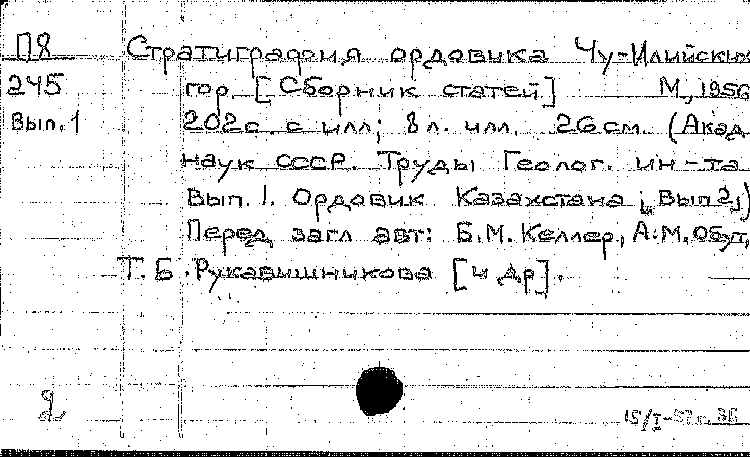 П8 Стратиграфия ордовика Чу-Илийских
245 гор. [Сборник статей] М, 1956
Вып. 1 202 с. с илл; 8 л. илл. 26 см. (Акад.
наук СССР. Труды Геолог. ин-та
Вып. 1. Ордовик Казахстана; Вып 2,)
Перед загл авт: Б.М. Келлер, А.М. Обут,
Т. Б. Рукавишникова [и др].
2
15/I-57 г.